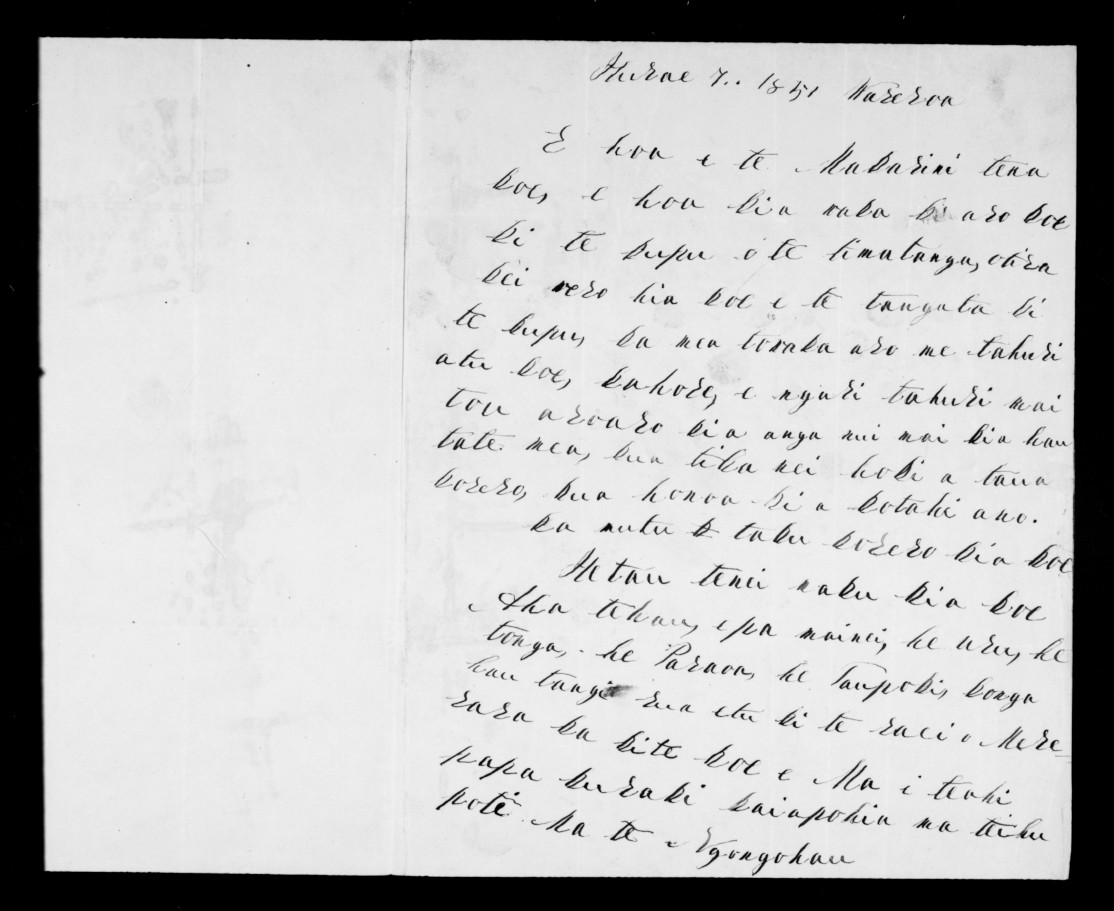 Hurae 7.. 1851 Wareroa
E hoa e te Makarini tena
koe, e hoa kia raka ki aro koe
ki te kupu o te timatanga, otira
kei rero hia koe e te tangata ki
te kupu, ka mea toraka aro me tahuri
atu koe, kahore, e ngari tahuri mai
tou aroaro kia anga nui mai kia hau
tate mea, kua tika nei hoki a taua
korero, kua honoa ki a kotahi ano.
ka mutu taku korero kia koe
He tau tenei naku kia koe
Aha tehau, e pa mainei, he uru, he
tonga, he Parera, he Taupoki, konga
hau tangi rua etu ki te raei o Mere=
rara ka kite koe e Ma i teahi
papa kuraki kaiapohia ma teihu
pote Ma te Ngongohau